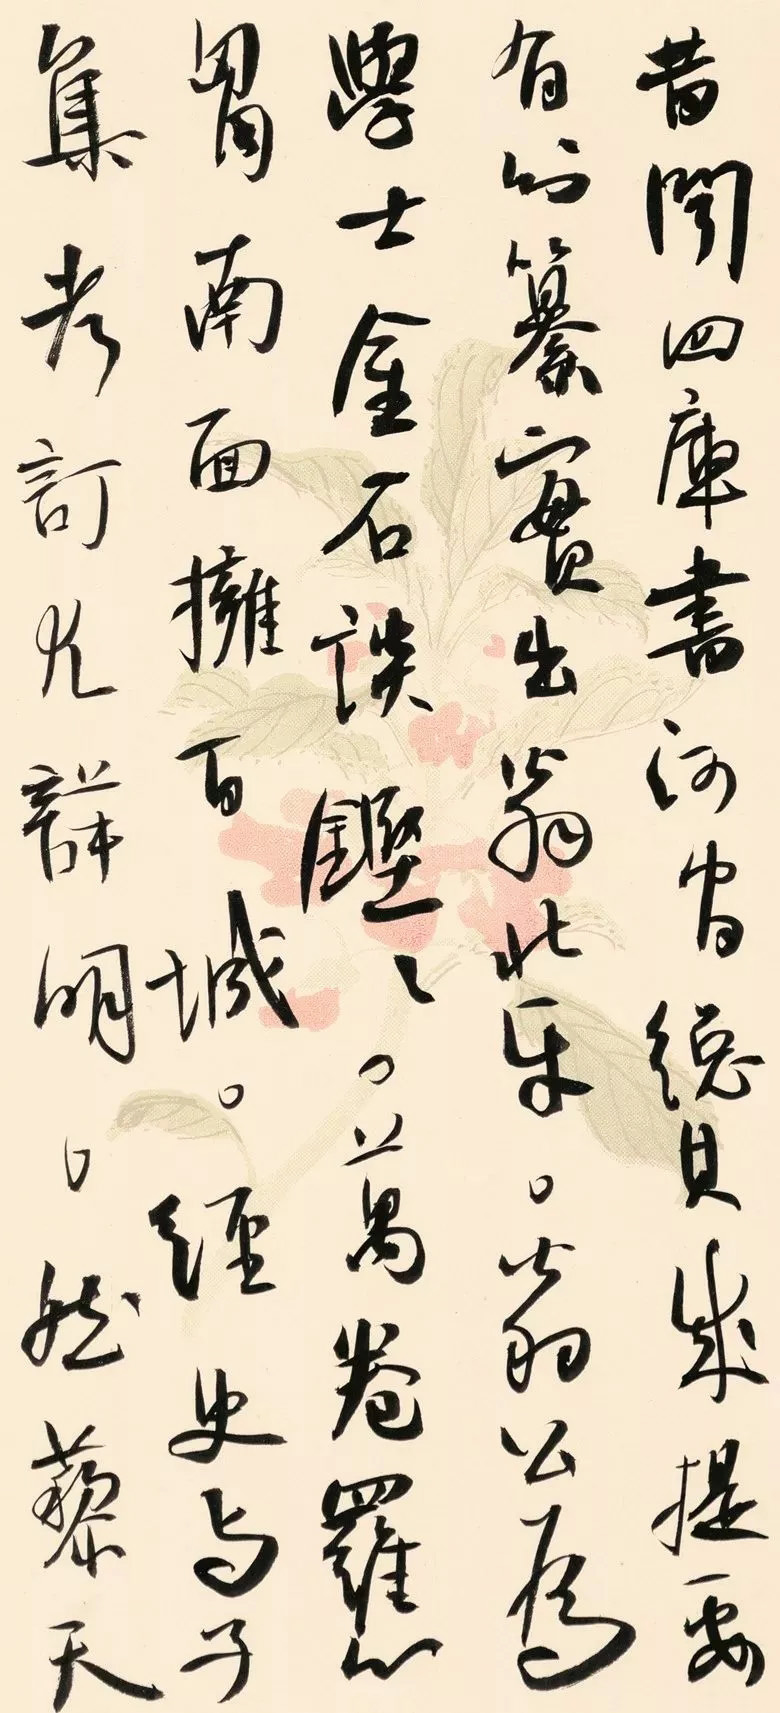 昔聞四庫書河間總其成提要
有所纂實出翁北平。翁公為
學士金石談鏗々。萬卷羅心
胃南面擁百城。經史与子
集考訂尤詳明。然藜天